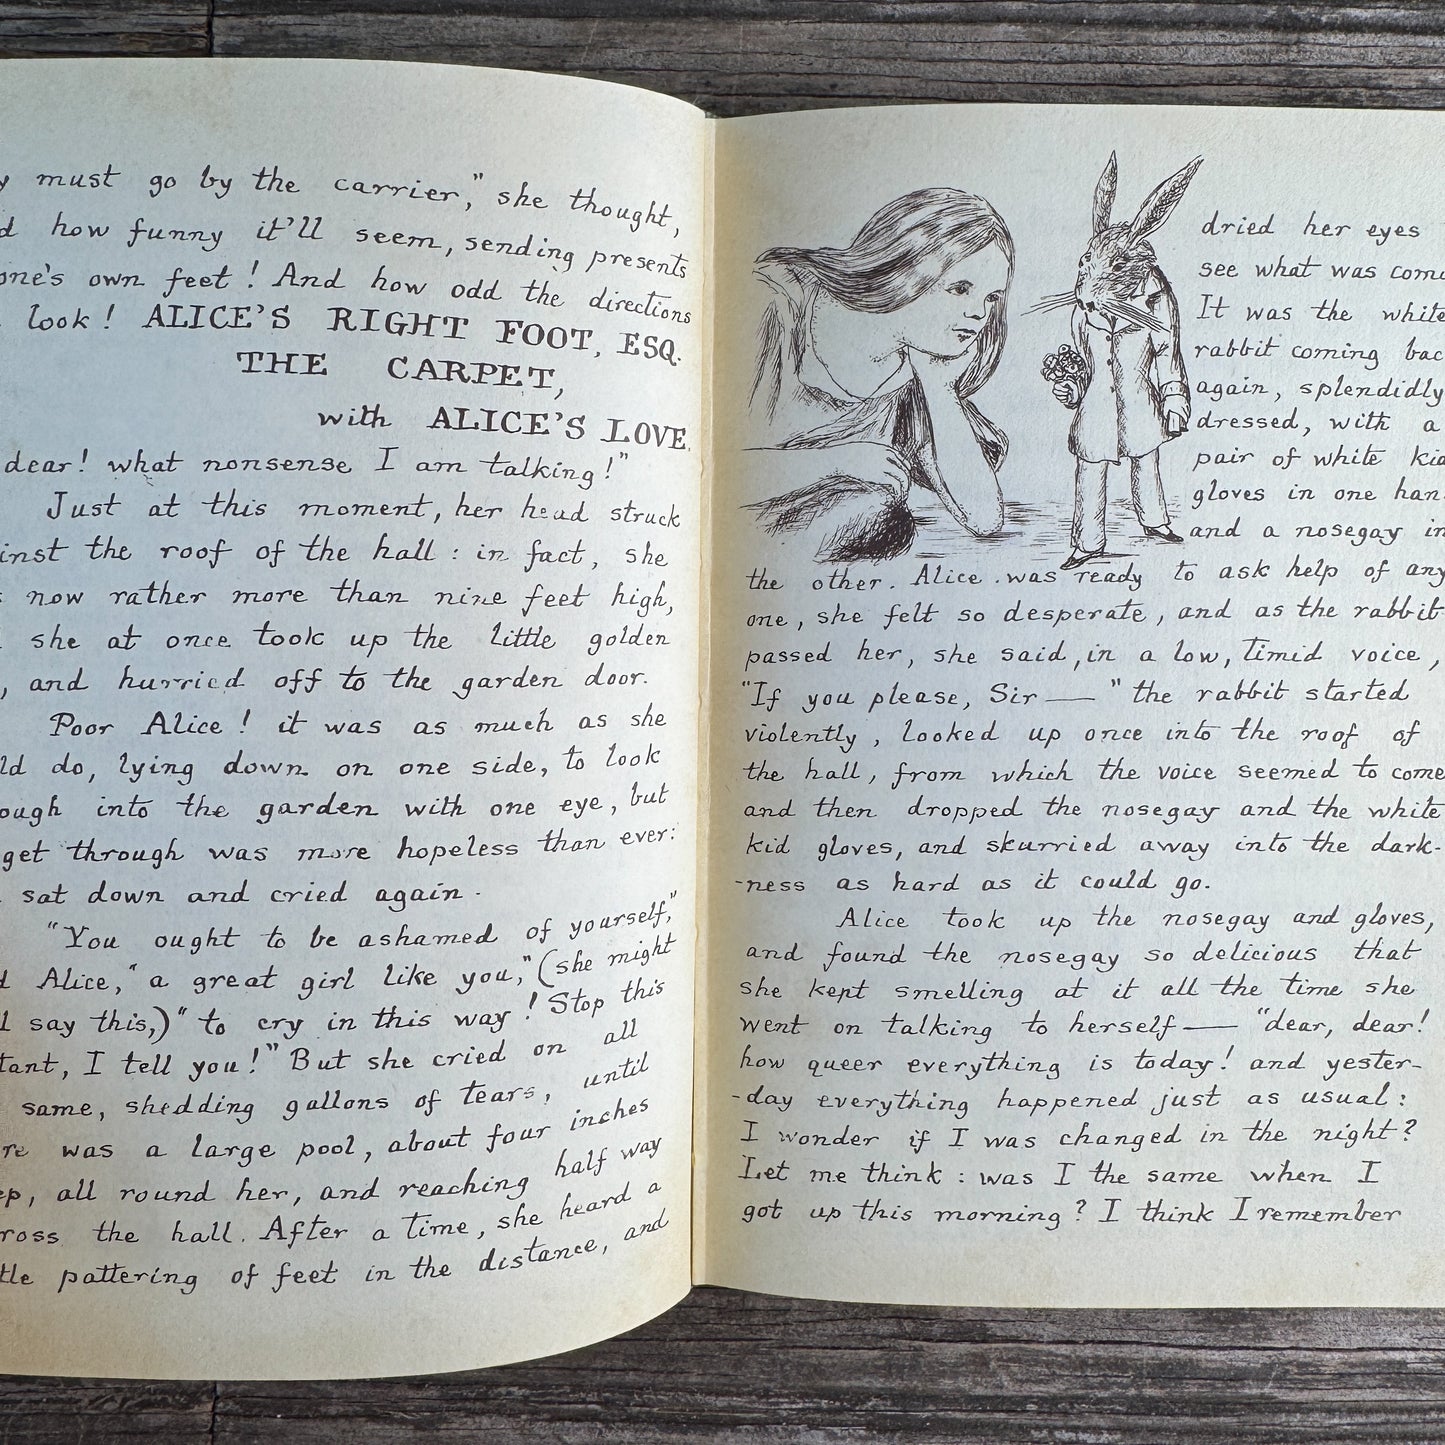 must go by the carrier," she thought,
how funny it'll seem, sending presents
one's own feet! And how odd the directions
look! ALICE'S RIGHT FOOT, ESQ.
THE CARPET,
with ALICE'S LOVE.
dear! what nonsense I am talking!"
Just at this moment, her head struck
inst the roof of the hall: in fact, she
now rather more than nine feet high,
she at once took up the little golden
, and hurried off to the garden door.
Poor Alice! it was as much as she
ld do, lying down on one side, to look
ough into the garden with one eye, but
get through was more hopeless than ever:
sat down and cried again.
"You ought to be ashamed of yourself,"
Alice, "a great girl like you," (she might
say this,) "to cry in this way! Stop this
tant, I tell you!" But she cried on all
same, shedding gallons of tears, until
re was a large pool, about four inches
ep, all round her, and reaching half way
ross the hall. After a time, she heard a
tle pattering of feet in the distance, and
dried her eyes
see what was com
It was the white
rabbit coming bac
again, splendidly
dressed, with a
pair of white kid
gloves in one han
and a nosegay in
the other. Alice was ready to ask help of any
one, she felt so desperate, and as the rabbit
passed her, she said, in a low, timid voice,
"If you please, Sir—" the rabbit started
violently, looked up once into the roof of
the hall, from which the voice seemed to come
and then dropped the nosegay and the white
kid gloves, and skurried away into the dark-
-ness as hard as it could go.
Alice took up the nosegay and gloves,
and found the nosegay so delicious that
she kept smelling at it all the time she
went on talking to herself— "dear, dear!
how queer everything is today! and yester-
-day everything happened just as usual:
I wonder if I was changed in the night?
Let me think: was I the same when I
got up this morning? I think I remember